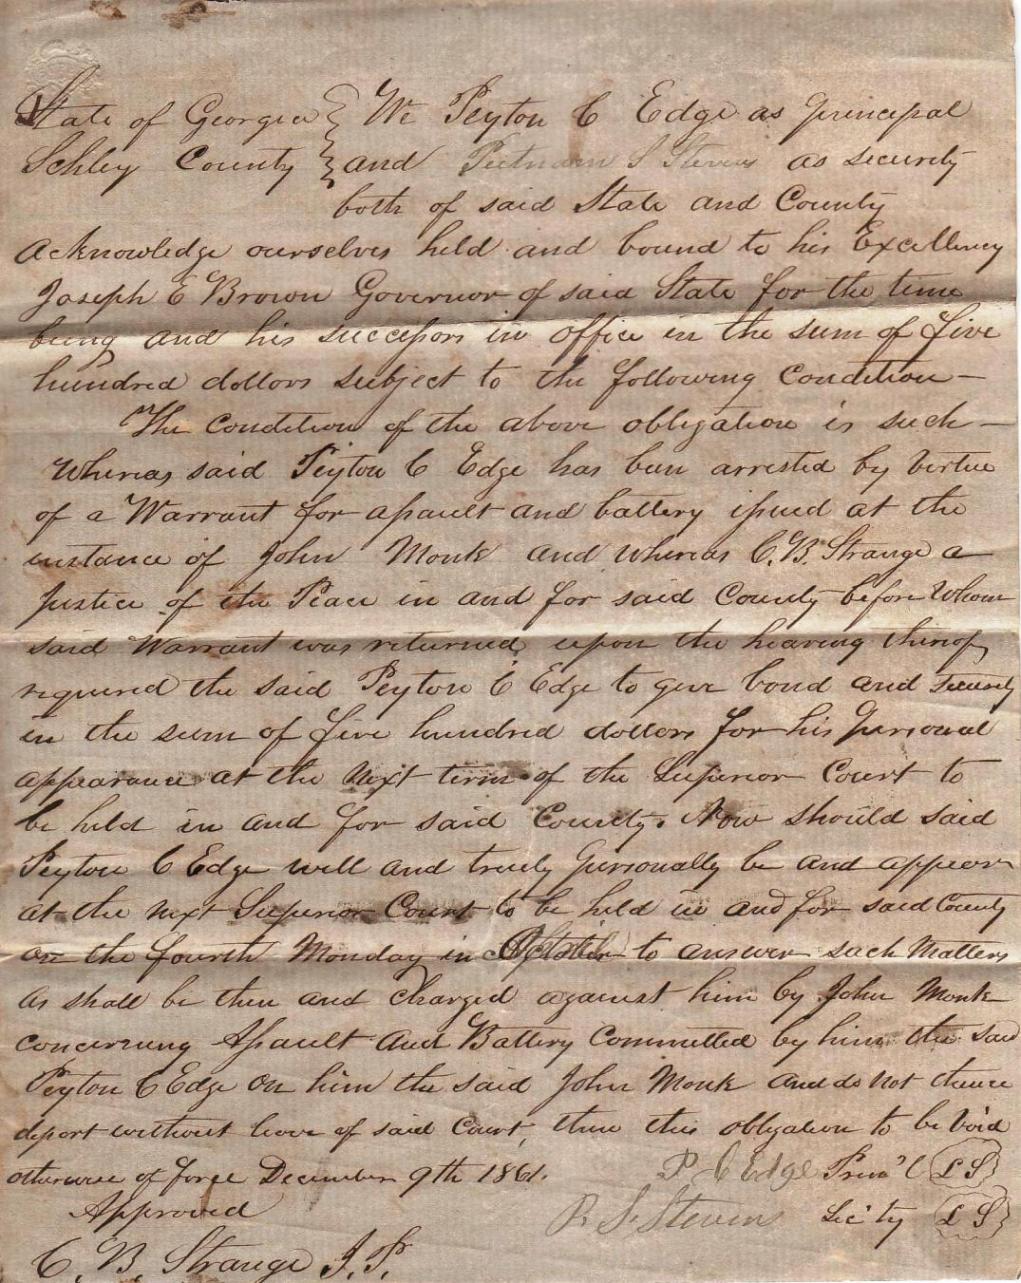 State of Georgia } We Peyton C Edge as principal
Schley County } and Putnam S Stevens as security
both of said State and County
acknowledge ourselves held and bound to his Excellency
Joseph E Brown Governor of said State for the time
being and his successors in office in the sum of five
hundred dollars subject to the following Condition—
The condition of the above obligation is such—
Whereas said Peyton C Edge has been arrested by virtue
of a Warrant for assault and battery issued at the
instance of John Monk and whereas C. B. Strange a
Justice of the Peace in and for said County before Whom
said Warrant was returned, upon the hearing thereof,
required the said Peyton C Edge to give bond and security
in the sum of five hundred dollars for his personal
appearance at the next term of the Superior Court to
be held in and for said County. Now should said
Peyton C Edge well and truly personally be and appear
at the next Superior Court to be held in and for said County
on the fourth Monday in to answer such Matters
as shall be then and charged against him by John Monk
concerning Assault and Battery Committed by him the said
Peyton C Edge on him the said John Monk and do not thence
depart without leave of said Court, then this obligation to be void
otherwise of force December 9th 1861.
P. C Edge Prin'l (L S)
Approved
P. S. Stevens Sec'ty (L S)
C. B. Strange J. P.